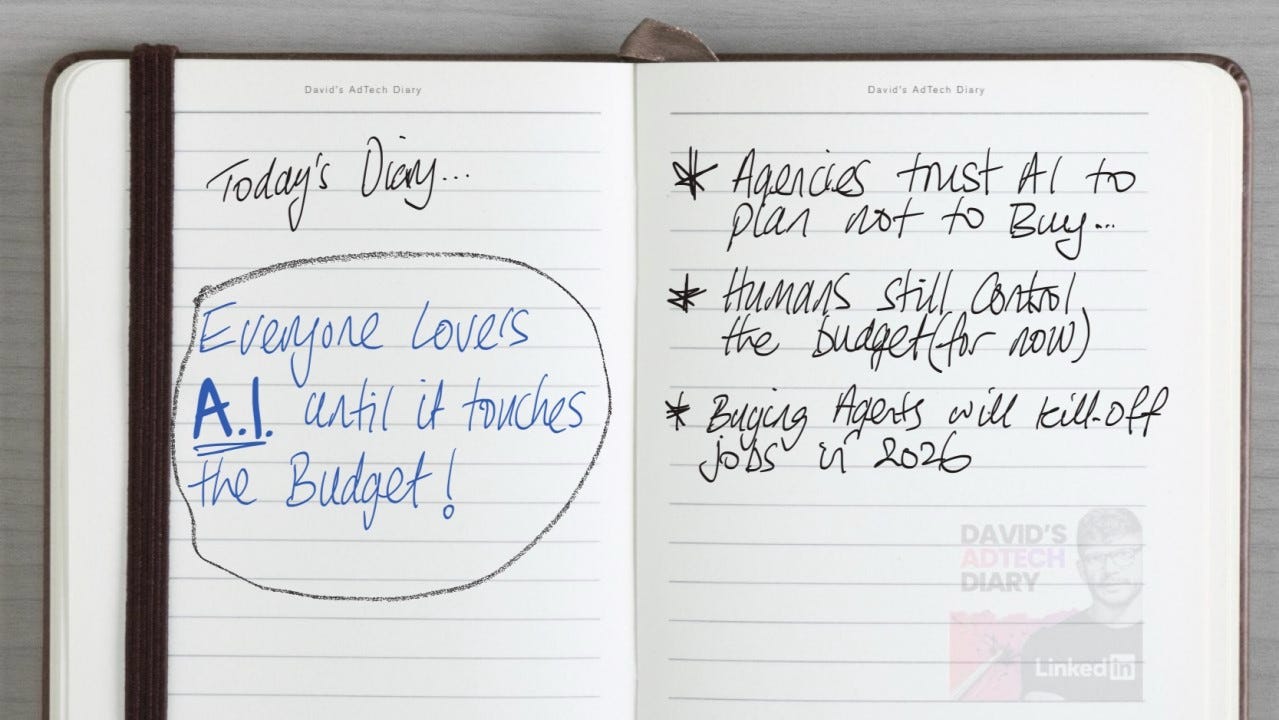 David's AdTech Diary
Today's Diary...
Everyone Loves
A.I. until it touches
the Budget!
David's AdTech Diary
* Agencies trust AI to
plan not to Buy...
* Humans still Control
the budget (for now)
* Buying Agents will kill-off
jobs in 2026
DAVID'S
ADTECH
DIARY
Linked in